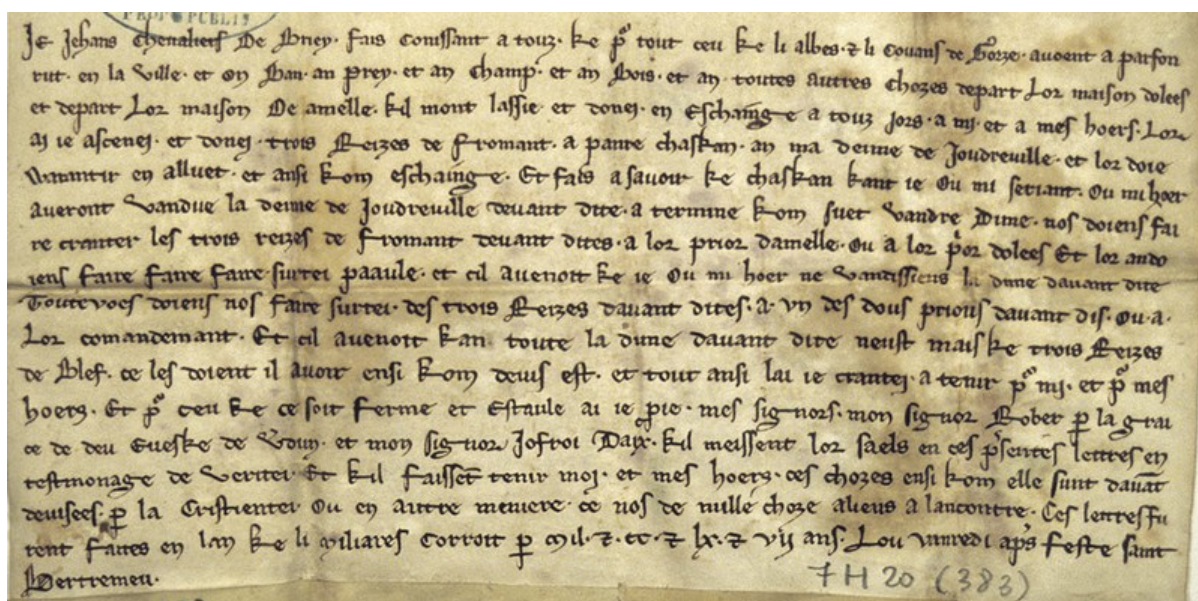 Je Jehans chevaliers de Briey. fais conissant a touz. ke pͦ tout ceu ke li albes. ⁊ li covans de Gorze. avoent a parfon
rut. en la ville. et on Ban. an prey. et an champ. et an Bois. et an toutes autres chozes depart Lor maison dolees
et depart Lor maison De amelle. kil mont lassie et donei. en eschainge a touz jors. a mi. et a mes hoers. Lor
ai ie ascenei. et donei. trois Reizes de fromant. a panre chaskan. an ma deime de Joudreville. et lor doie
warantir en alluet. et ansi kom eschainge. Et fais a savoir ke chaskan kant ie Ou mi seriant. Ou mi hoer
averont vandue la deime de Joudreville devant dite. a termine kom suet vandre Dime. nos doiens fai
re cranter les trois reizes de fromant devant dites. a lor prior damelle. Ou a lor pͥor dolees Et lor ando
iens faire faire faire surtei paaule. et cil avenoit ke ie Ou mi hoer ne vandissiens la dime davant dite
Toutevoes doiens nos faire surtei. des trois Reizes davant dites. a. vn des dous prious davant dis. Ou. a.
Lor comandemant. Et cil avenoit kan toute la dime davant dite neust mais ke trois Reizes
de Blef. ce les doient il avoir ensi kom devis est. et tout ansi lai ie crantei. a tenir pͦ mi. et pͦ mes
hoers. Et pͦ ceu ke ce soit ferme et estaule ai ie pie. mes signors. mon signor Robet ꝑ la grai
ce de deu Eveske de Verdun. et mon signor Jofroi Daix. kil meissent lor saels en ces pͥsentes lettres en
testmonage de veritei. Et kil faissēt tenir moi. et mes hoers. ces chozes ensi kom elle sunt davāt
devisees. ꝑ la Cristientei Ou en autre meniere. ce nos de nulle choze aliens a lancontre. Ces lettres fu
rent faites en lan ke li miliares corroit ꝑ mil. ⁊. cc. ⁊ lx. ⁊ vij ans. Lou vanredi apͤs feste saint
Bertremeu.
7 H 20 (383)